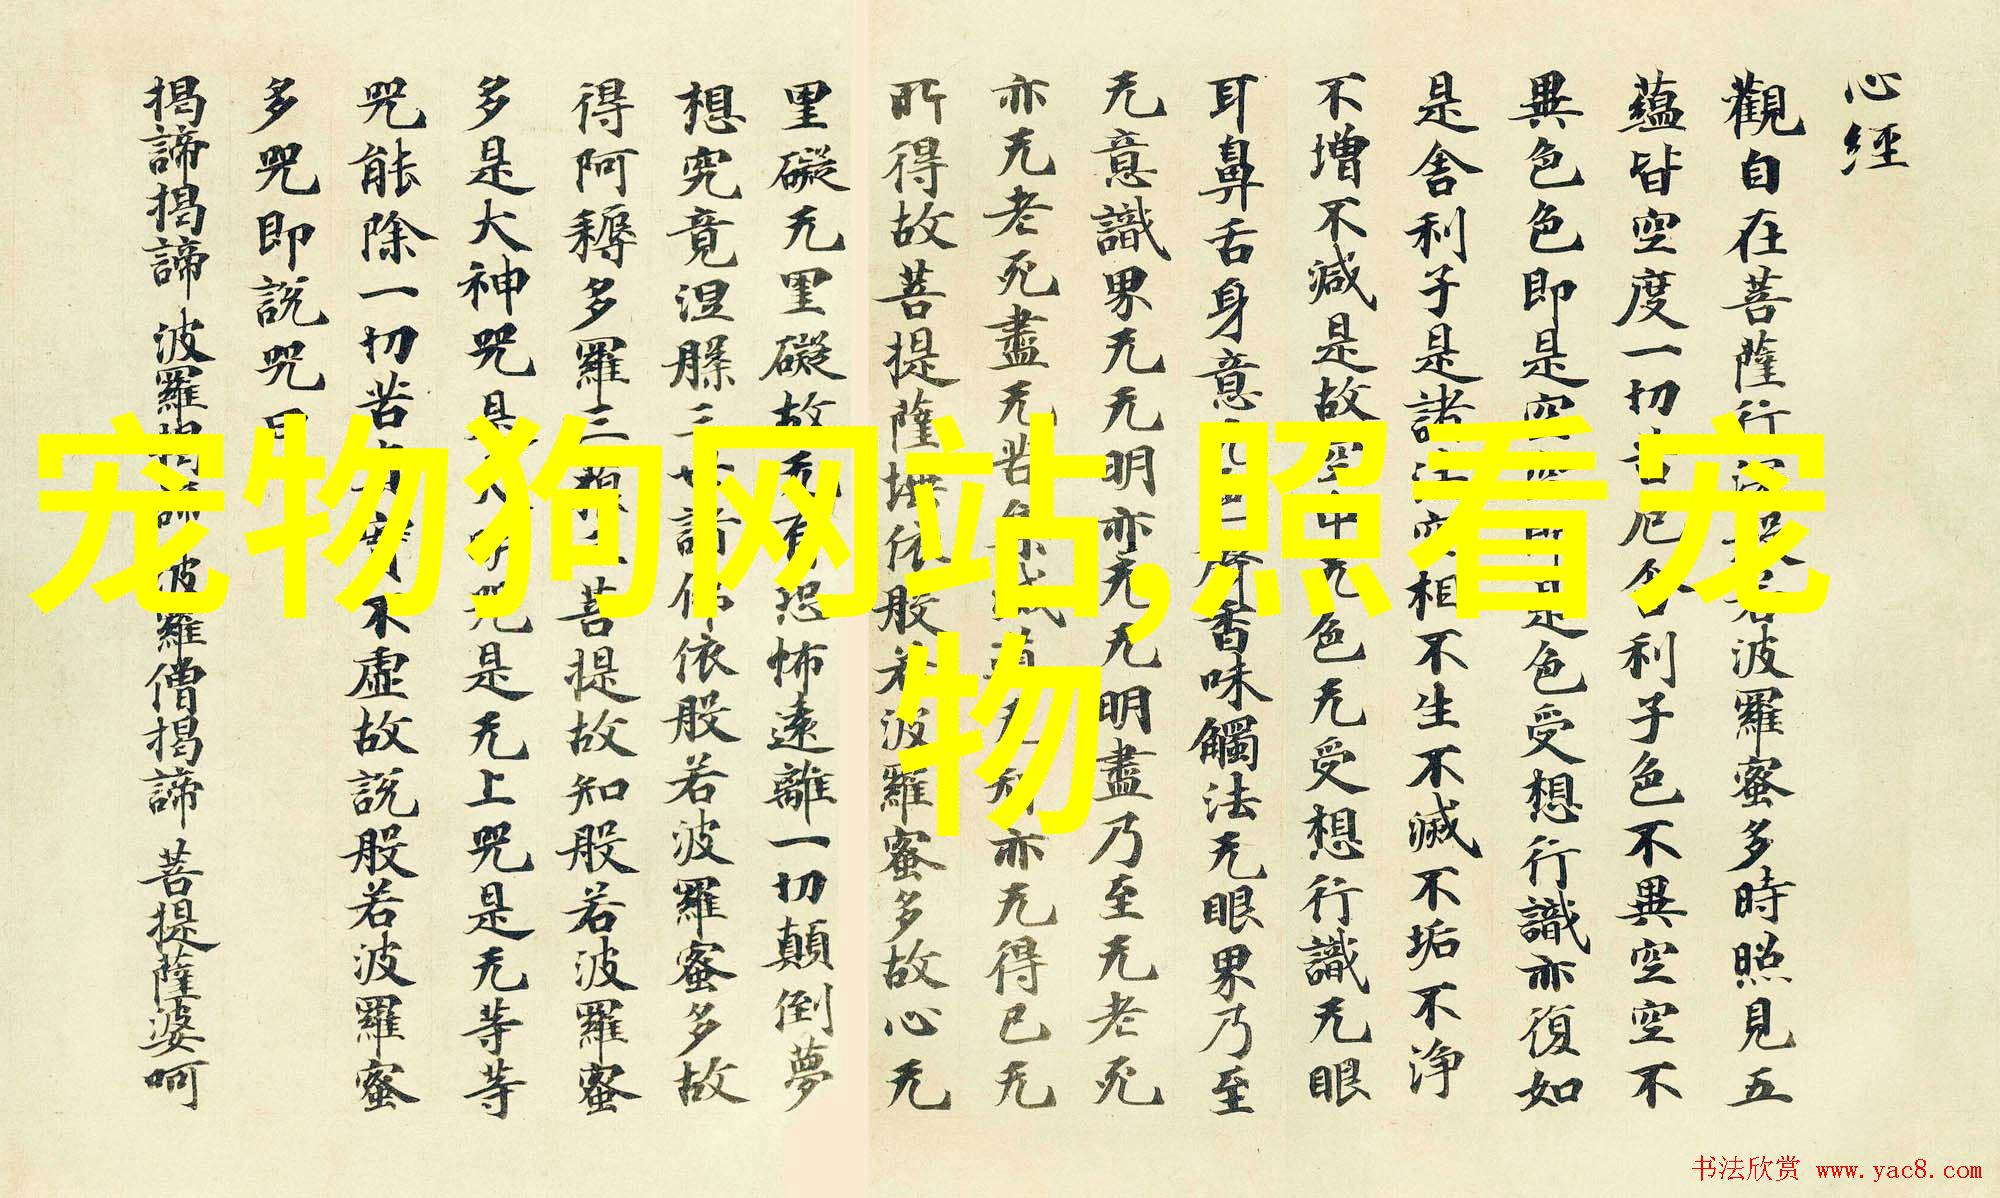 心經
觀自在菩薩行深般若波羅蜜多時照見五
蘊皆空度一切苦厄舍利子色不異空空不
異色色即是空空即是色受想行識亦復如
是舍利子是諸法空相不生不滅不垢不浄
不增不減是故空中无色无受想行識无眼
耳鼻舌身意无色聲香味觸法无眼界乃至
无意識界无无明亦无无明盡乃至无老死
亦无老死盡无苦集滅道无智亦无得已无
所得故菩提薩埵依般若波羅蜜多故心无
罣礙无罣礙故无有恐怖遠離一切顛倒夢
想究竟涅槃三世諸佛依般若波羅蜜多故
得阿耨多羅三藐三菩提故知般若波羅蜜
多是大神咒是大明咒是无上咒是无等等
咒能除一切苦真實不虛故說般若波羅蜜
多咒即說咒曰
揭諦揭諦 波羅揭諦 波羅僧揭諦 菩提薩婆呵
宠物狗网站,照看宠
物
书法欣赏 www.yac8.com